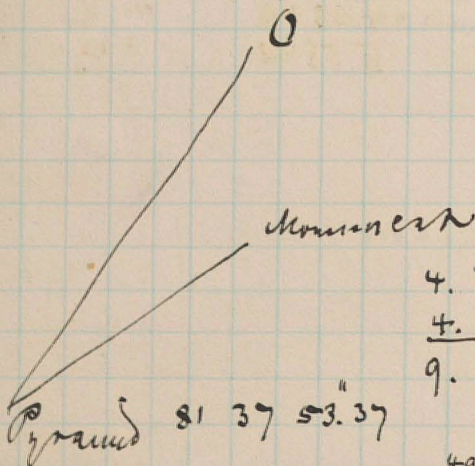 O
Monument
4.
4.
9.
Pyramid 81 37 53."37